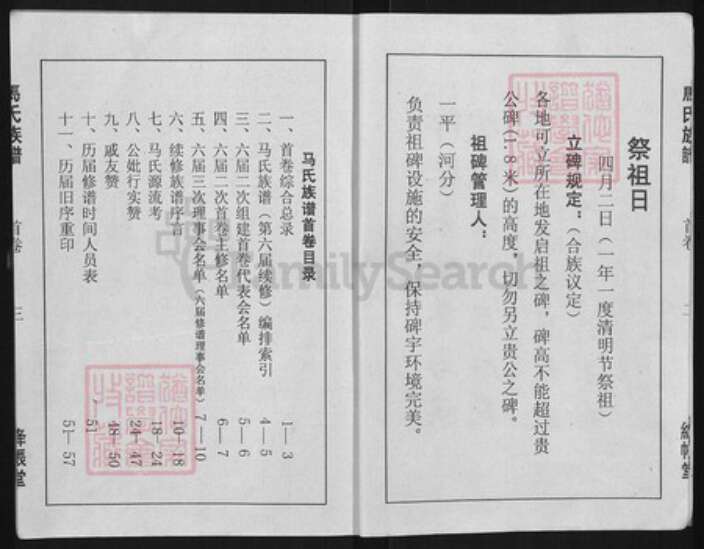 祭祖日
四月二日（一年一度清明节祭祖）
立碑规定：（合族议定）
各地可立所在地发启祖之碑，碑高不能超过贵
公碑（1.8米）的高度，切勿另立贵公之碑。
祖碑管理人：
一平（河分）
负责祖碑设施的安全，保持碑宇环境完美。
马氏族谱首卷目录
一、首卷综合总录 1—3
二、马氏族谱（第六届续修）编排索引 4—5
三、六届二次组建首卷代表会名单 5—6
四、六届二次首卷主修名单 6—7
五、六届三次理事会名单（六届修谱理事会名单） 7—10
六、续修族谱序言 10—18
七、马氏源流考 18—24
八、公妣行实赞 24—47
九、戚友赞 48—50
十、历届修谱时间人员表 51
十一、历届旧序重印 51—57
馬氏族譜
首卷
三
绛帳堂
FamilySearch